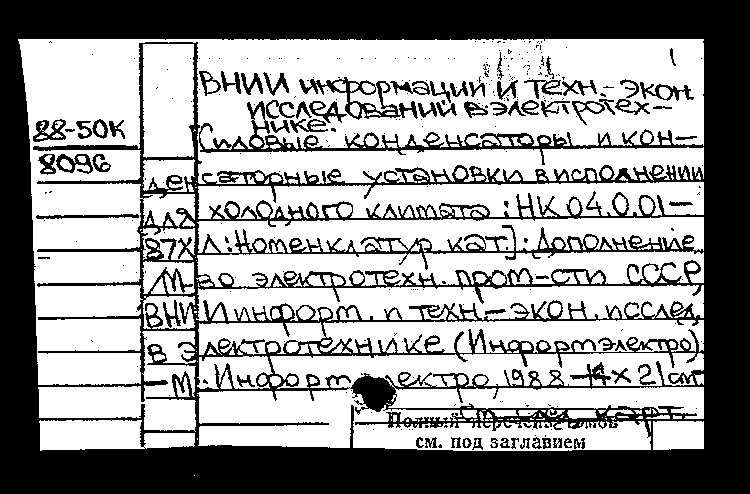 ВНИИ информации и техн.-экон.
исследований в электротех-
нике.
88-50К
8096
Силовые конденсаторы и кон-
денсаторные установки в исполнении
для холодного климата : НК 04.0.01-
87ХЛ : Номенклатур. кат.] : Дополнение
/М-во электротехн. пром-сти СССР,
ВНИИ информ. и техн.-экон. исслед.
в электротехнике (Информэлектро).
-М.: Информэлектро, 1988 -14 х 21 см.
см. карт.
Полный перечень томов
см. под заглавием